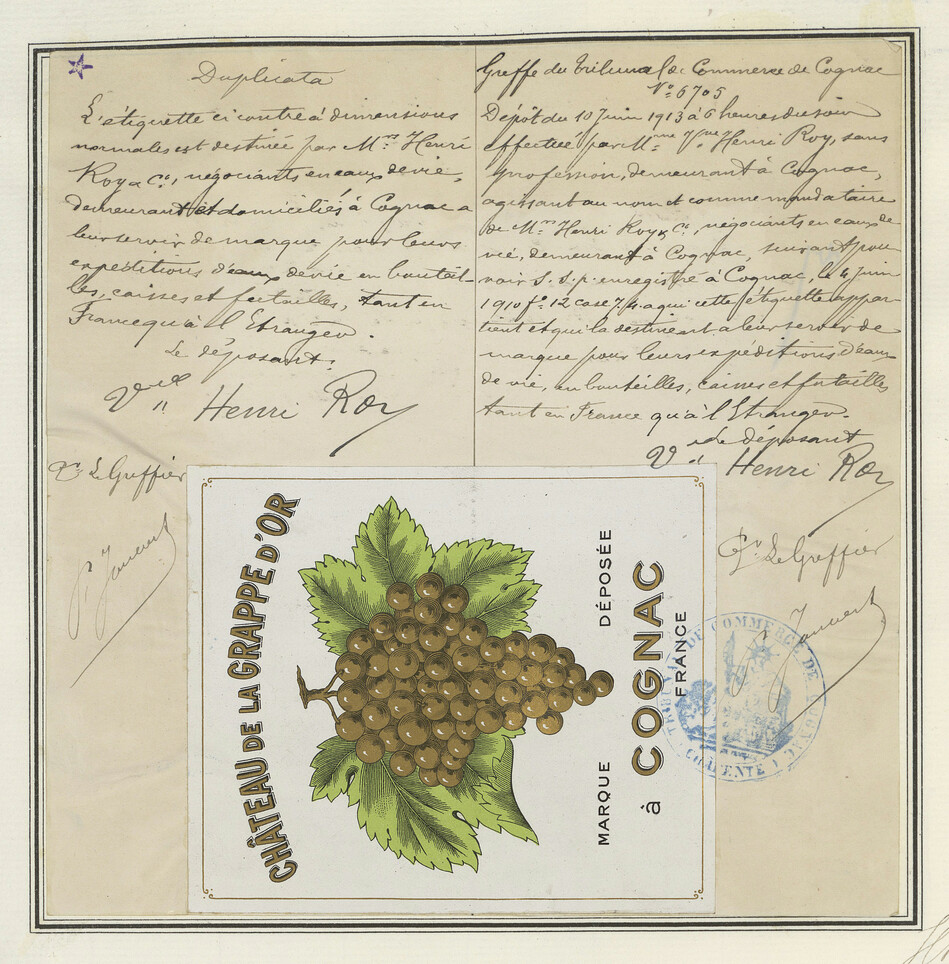 Duplicata
L'étiquette ci contre à dimensions
normales est destinée par M.rs Henri
Roy & C.o, négociants en eaux de vie,
demeurant et domiciliés à Cognac a
leur servir de marque pour leurs
expéditions d'eaux de vie en bouteil-
les, caisses et futailles, tant en
France qu'à l'Etranger.
Le déposant.
V.ve Henri Roy
Le Greffier
Greffe du Tribunal de Commerce de Cognac
N.o 6705
Dépôt du 10 Juin 1913 à 6 heures du soir
effectué par M.me V.ve Henri Roy, sans
profession, demeurant à Cognac,
agissant au nom et comme mandataire
de M.rs Henri Roy & C.o, négociants en eaux de
vie, demeurant à Cognac, suivant pou-
voir s.s.p. enregistré à Cognac, le 4 juin
1910 f.o 12 case 74 a qui cette étiquette appar-
tient et qui la destinent a leur servir de
marque pour leurs expéditions d'eaux
de vie, en bouteilles, caisses et futailles
tant en France qu'à l'Etranger.
Le déposant
V.ve Henri Roy
Le Greffier
CHÂTEAU DE LA GRAPPE D'OR
MARQUE DÉPOSÉE
à COGNAC
FRANCE
TRIBUNAL DE COMMERCE DE COGNAC
CHARENTE